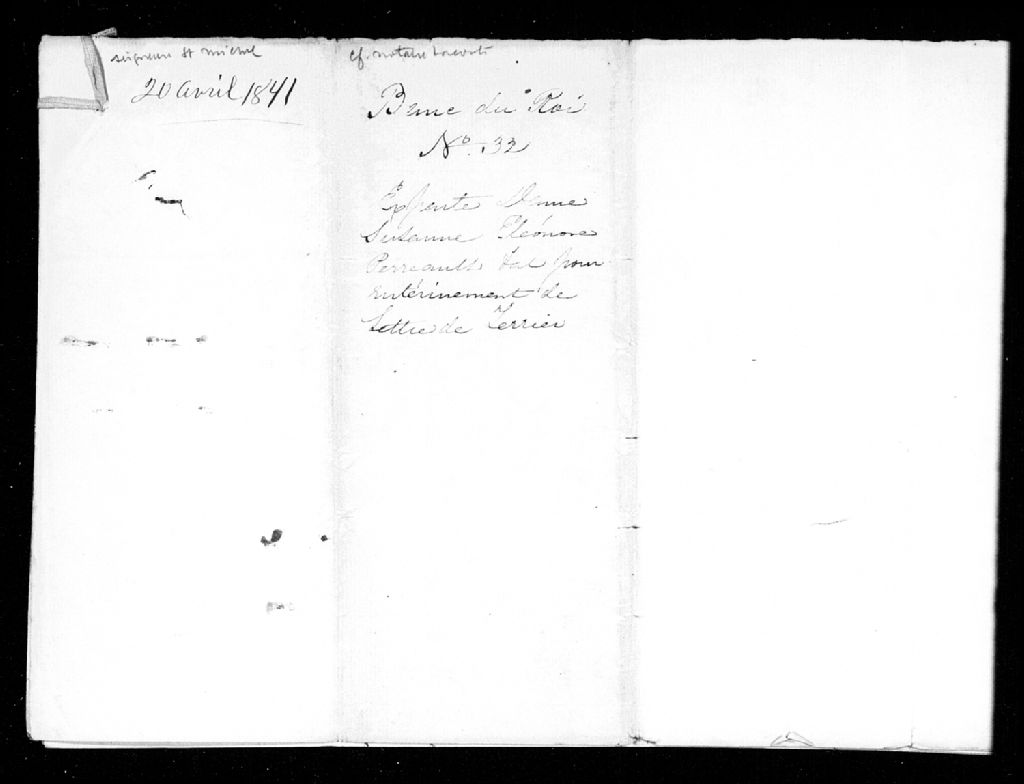 seigneurie St Michel
20 avril 1841
cf. notaire
Banc du Roi
No. 32
Exparte Dame
Susanne Eléonore
Perreault &al pour
entérinement de
Lettre de Terrier